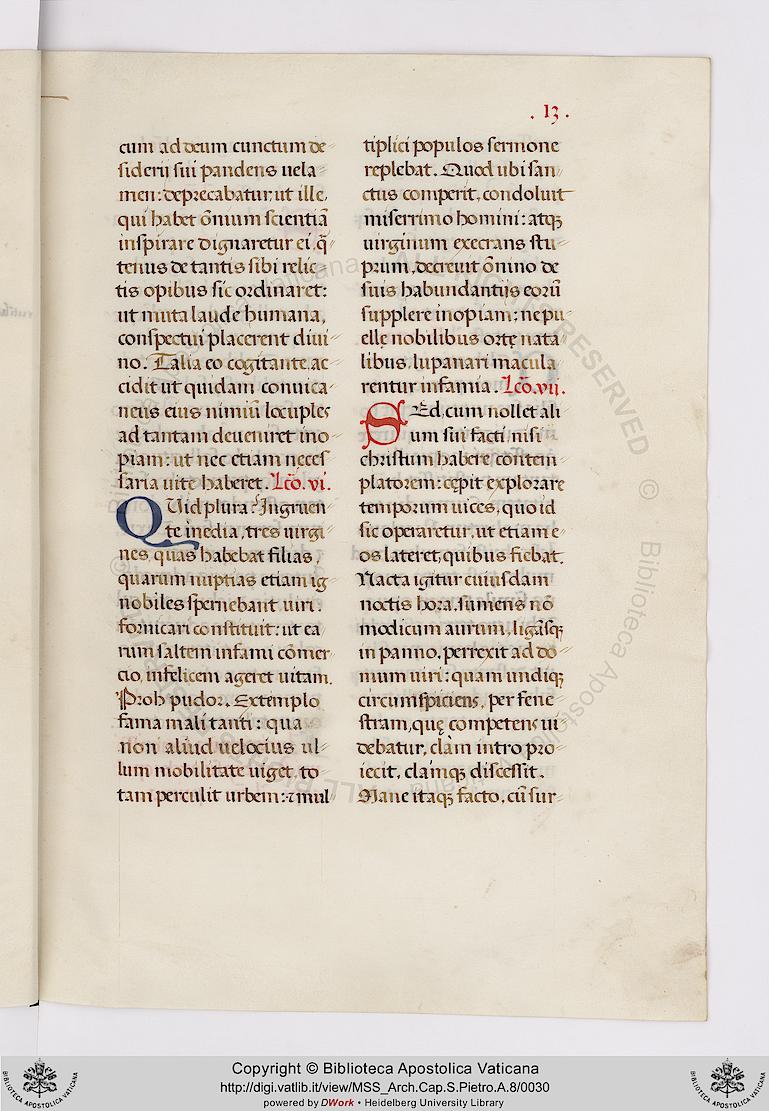 . 13 .
cum ad deum cunctum de
siderij sui pandens uela
men: deprecabatur, ut ille,
qui habet om̄nium scientiā
inspirare dignaretur ei, q̄
tenus de tantis sibi relic
tis opibus sic ordinaret:
ut muta laude humana,
conspectui placerent diui
no. Talia eo cogitante, ac
cidit ut quidam conuica
neus eius nimiū locuples
ad tantam deueniret ino
piam: ut nec etiam neces
saria uite haberet. Lc̄o. vi.
QUid plura? Ingruen
te inedia, tres uirgi
nes, quas habebat filias,
quarum nuptias etiam ig
nobiles spernebant uiri:
fornicari constituit: ut ea
rum saltem infami cōmer
cio, infelicem ageret uitam.
Proh pudor. Extemplo
fama mali tanti: qua
non aliud uelocius ul
lum mobilitate uiget, to
tam perculit urbem: ⁊ mul
tiplici populos sermone
replebat. Quod ubi san
ctus comperit, condoluit
miserrimo homini: atqꝫ
uirginum execrans stu
prum, decreuit ōnino de
suis habundantijs eorū
supplere inopiam: ne pu
elle nobilibus ortę nata
libus, lupanari macula
rentur infamia. Lc̄o. vii.
SEd, cum nollet ali
um sui facti nisi
christum habere contem
platorem: cepit explorare
temporum uices, quo id
sic operaretur, ut etiam e
os lateret, quibus fiebat.
Nacta igitur cuiusdam
noctis hora, sumens nō
modicum aurum, ligāsqꝫ
in panno, perrexit ad do
mum uiri: quam undiqꝫ
circumspiciens, per fene
stram, quę competens ui
debatur, clàm intro pro
iecit, clamqꝫ discessit.
Mane itaqꝫ facto, cū sur
Copyright © Biblioteca Apostolica Vaticana
http://digi.vatlib.it/view/MSS_Arch.Cap.S.Pietro.A.8/0030
powered by DWork • Heidelberg University Library